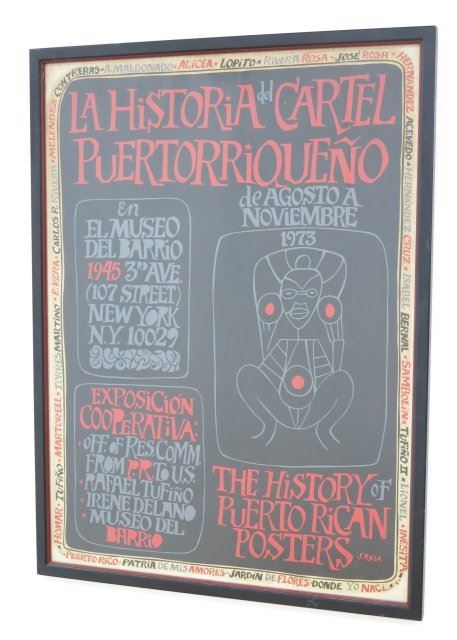 CONTRERAS · A. MALDONADO · ALICEA · LOPITO · RIVERA ROSA · JOSÉ ROSA ·
HERNANDEZ ACEVEDO · HERNANDEZ CRUZ · ISABEL BERNAL · SAMBOLIN · TUFIÑO II · LIONEL
HOMAR · TUFIÑO · MARTORELL · TORRES MARTINO · E. VERA · CARLOS R. RIVERA · MELENDEZ
LA HISTORIA del CARTEL
PUERTORRIQUEÑO
en
EL MUSEO
DEL BARRIO
1945 3RD AVE.
(107 STREET)
NEW YORK
N.Y. 10029
de AGOSTO A
NOVIEMBRE
1973
EXPOSICION
COOPERATIVA:
· OFF. of RES. COMM.
FROM P.R. TO U.S.
· RAFAEL TUFIÑO
· IRENE DELANO
· MUSEO DEL
BARRIO
THE HISTORY of
PUERTO RICAN
POSTERS
J. ROSA
PUERTO RICO · PATRIA DE MIS AMORES · JARDIN DE FLORES · DONDE YO NACI